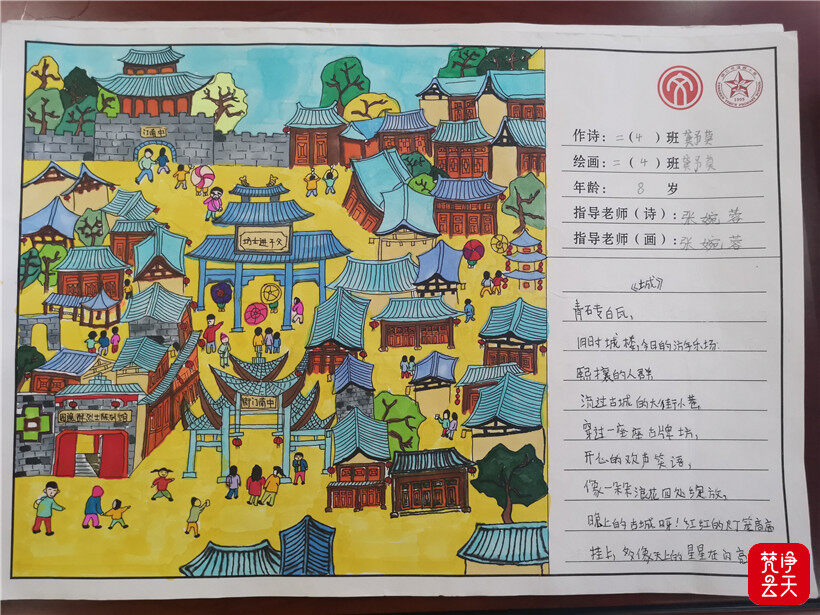 中南门
父子进士坊
中南门
周逸群烈士陈列馆
1905
作诗：二（4）班
绘画：二（4）班
年龄： 8 岁
指导老师（诗）：张婉蓉
指导老师（画）：张婉蓉
《城》
青砖白瓦，
旧时城楼，今日的游乐场
熙攘的人群
流过古城的大街小巷，
穿过一座座古牌坊，
开心的欢声笑语，
像一朵朵浪花四处绽放，
晚上的古城呀！红红的灯笼高高
挂上，多像天上的星星在
梵净云天